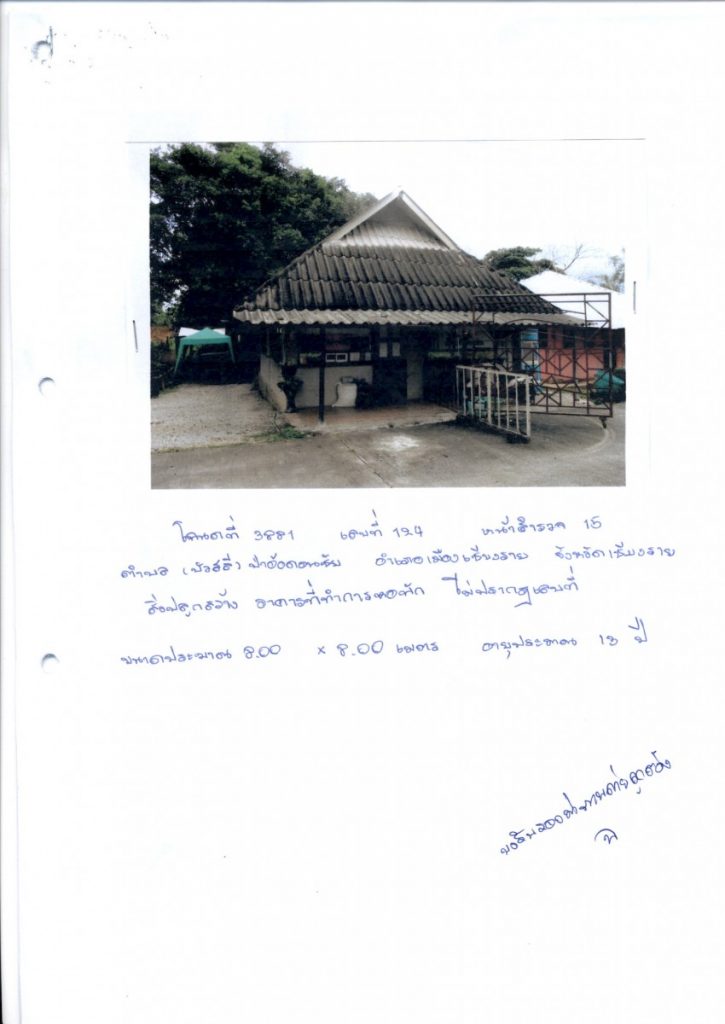 โฉนดที่ 3881 เลขที่ 124 หน้าสำรวจ 15
ตำบล (บัวสลี) ป่าอ้อดอนชัย อำเภอเมืองเชียงราย จังหวัดเชียงราย
สิ่งปลูกสร้าง อาคารที่ทำการหอพัก ไม่ปรากฏเลขที่
ขนาดประมาณ 8.00 × 8.00 เมตร อายุประมาณ 13 ปี
ขอรับรองว่าภาพถ่ายถูกต้อง